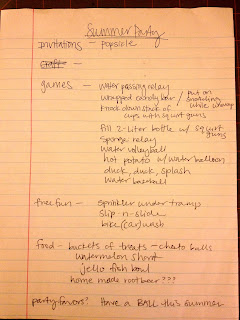 Summer Party
invitations - popsicle
craft -
games - water passing relay
wrapped candy bar / put on
snorkeling
while unwrap
knock down stack of
cups with squirt guns
fill 2-liter bottle w/ squirt
guns
Sponge relay
water volleyball
hot potato w/ water balloon
duck, duck, splash
water baseball
free fun - sprinkler under tramp
slip-n-slide
bike (car) wash
food - buckets of treats - cheeto balls
watermelon
jello fish bowl
home made rootbeer???
party favors? Have a BALL this summer